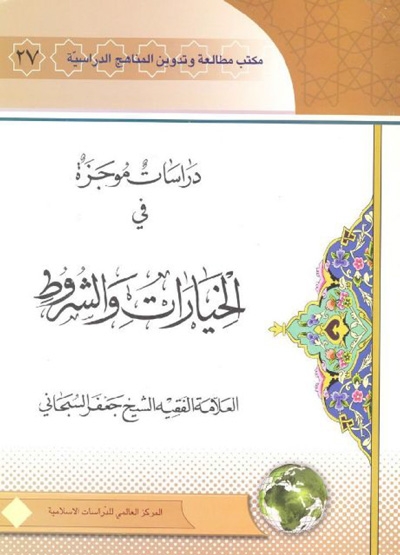 مكتب مطالعة و تدوين المناهج الدراسيّة
٢٧
دراساتٌ موجزةٌ
في
الخيارات والشروط
العلامة الفقيه الشيخ جعفر السبحاني
المركز العالمي للدّراسات الاسلامية